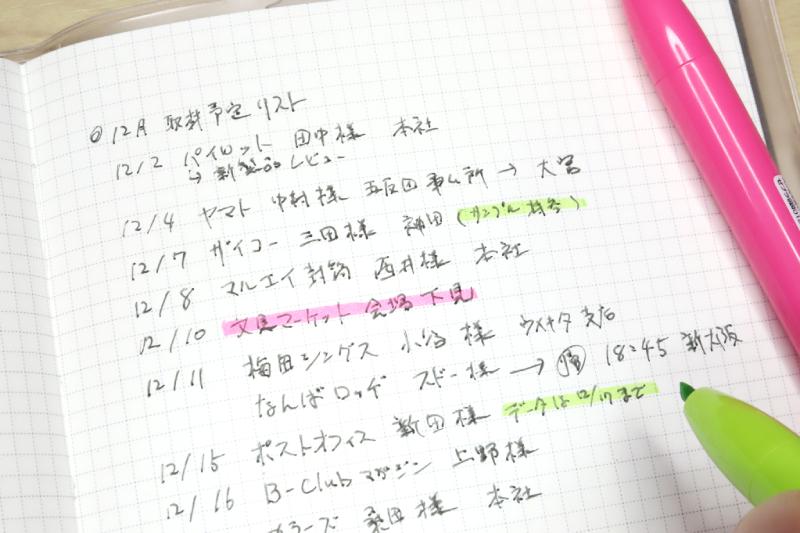 12月 取材予定リスト
12/2 パイロット 田中様 本社
→新製品レビュー
12/4 ヤマト 中村様 五反田事ム所→大宮
12/7 ザイコー 三田様 神田(サンプル持参)
12/8 マルエイ封筒 西井様 本社
12/10 文具マーケット会場下見
12/11 梅田シングス 小谷様 ウメキタ支店
なんばロッヂ スドー様→ 18:45 新大阪
12/15 ポストオフィス 新田様 データは12/17まで
12/16 B-Clubマガジン 上野様
ラーズ 桑田様 本社